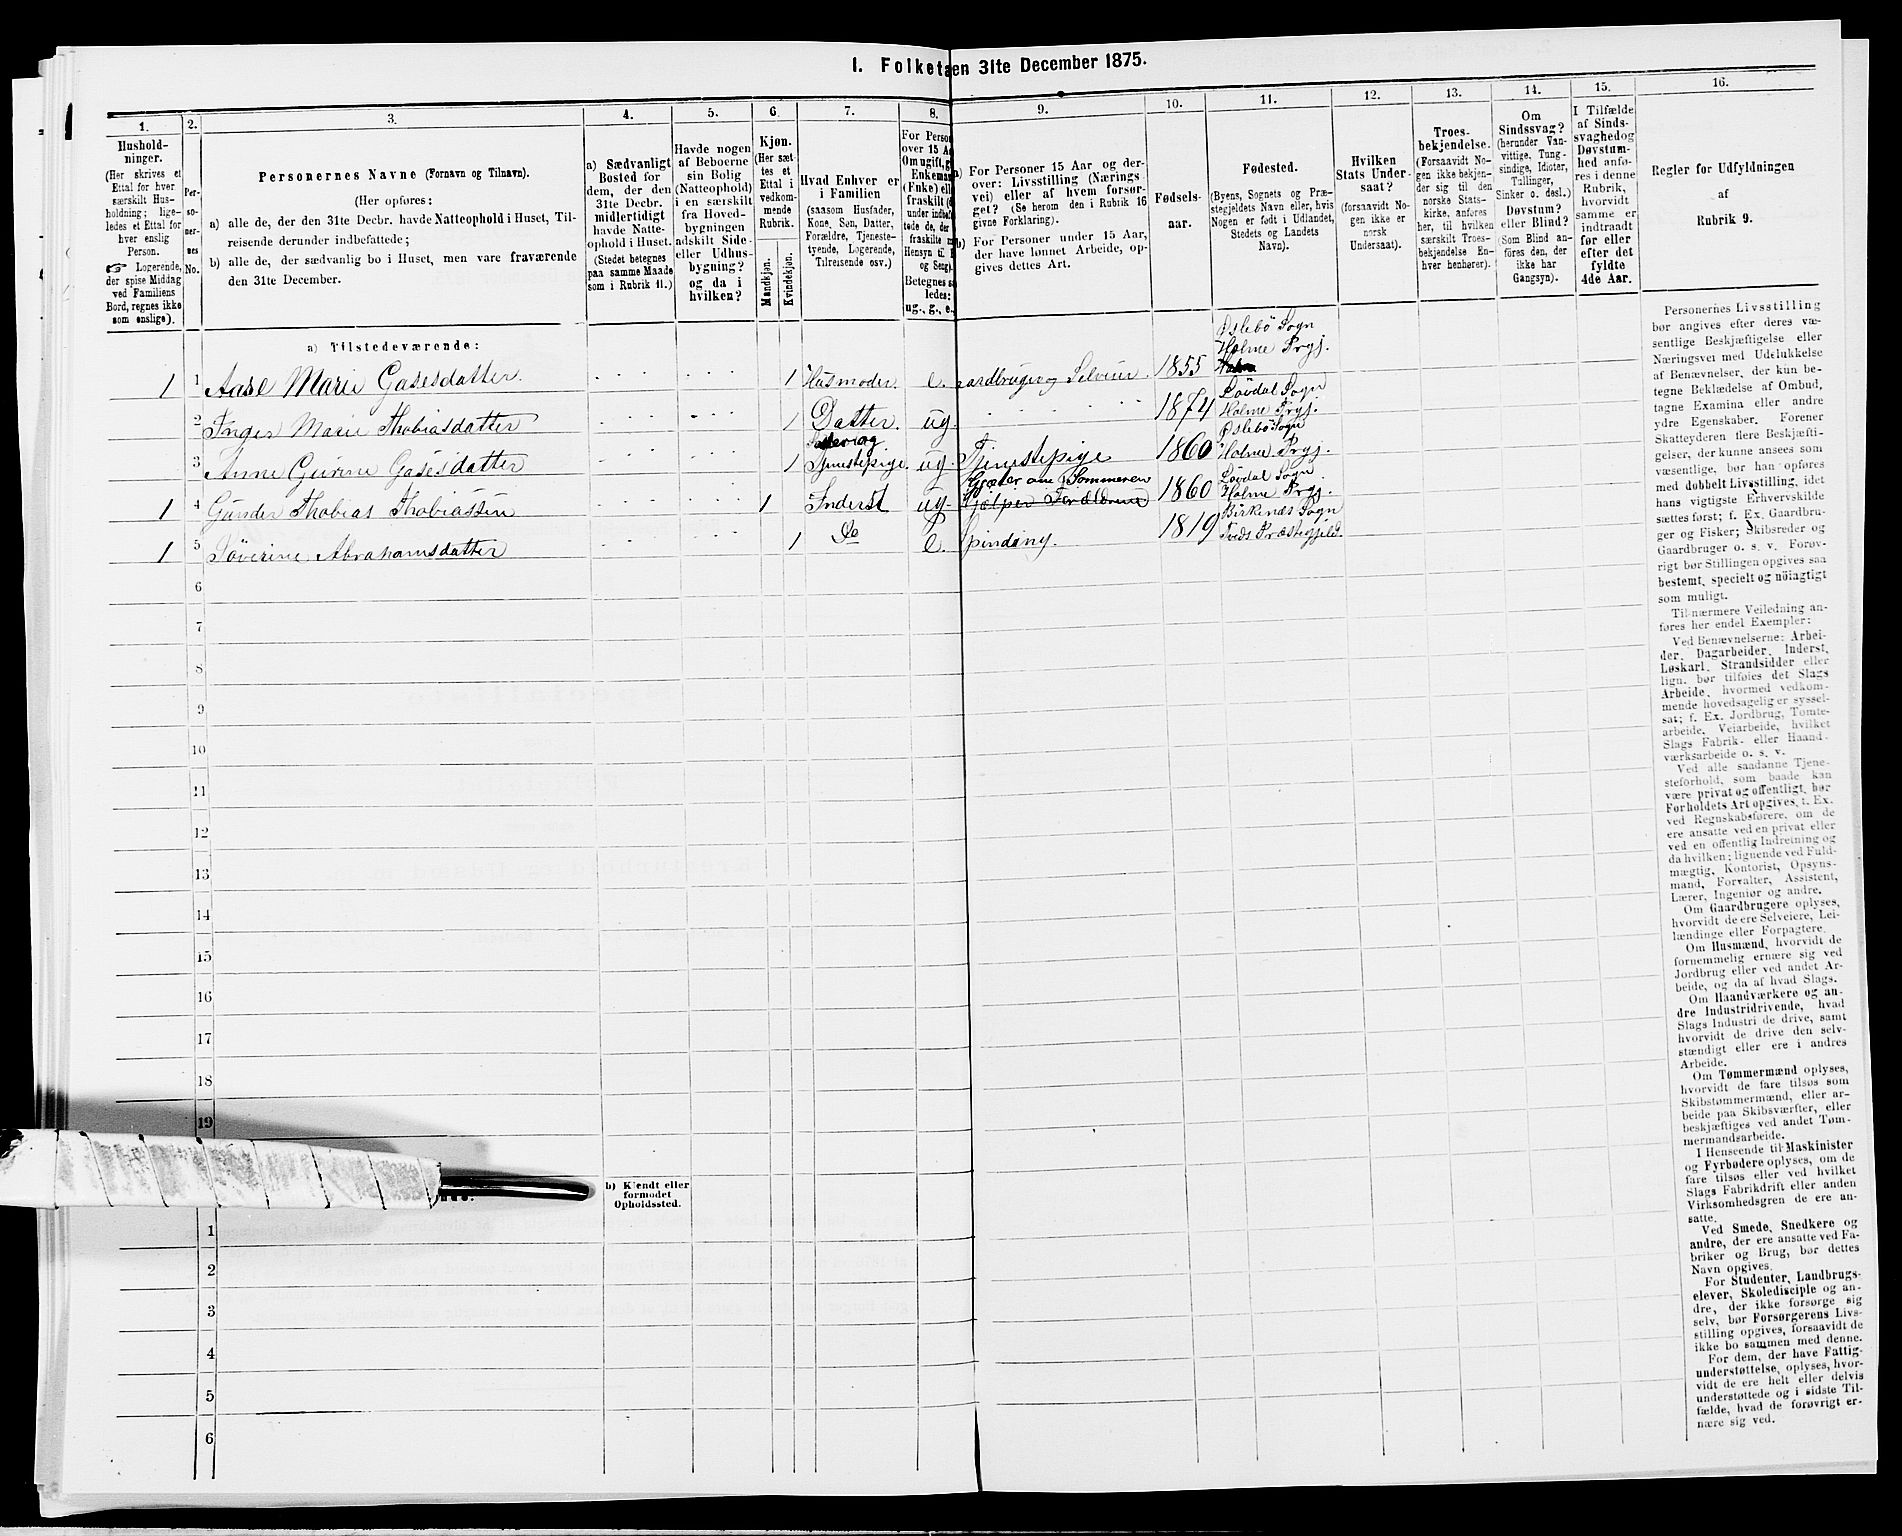 I. Folketællen 31te December 1875.
1.
Hushold-
ninger.
(Her skrives et
Ettal for hver
særskilt Hus-
holdning; lige-
ledes et Ettal for
hver enslig
Person.
Logerende,
der spise Middag
ved Familiens
Bord, regnes ikke
som enslige).
2.
Per-
so-
ner-
nes
No.
3.
Personernes Navne (Fornavn og Tilnavn).
(Her opføres:
a) alle de, der den 31te Decbr. havde Natteophold i Huset, Til-
reisende derunder indbefattede;
b) alle de, der sædvanlig bo i Huset, men vare fraværende
den 31te December.
4.
a) Sædvanligt
Bosted for
dem, der den
31te Decbr.
midlertidigt
havde Natte-
ophold i Huset.
(Stedet betegnes
paa samme Maade
som i Rubrik 11.)
5.
Havde nogen
af Beboerne
sin Bolig
(Natteophold)
i en særskilt
fra Hoved-
bygningen
adskilt Side-
eller Udhus-
bygning?
og da i
hvilken?
6.
Kjøn.
(Her sæt-
tes et
Ettal i
vedkom-
mende
Rubrik.
Mandkjøn.
Kvindekjøn.
7.
Hvad Enhver er
i Familien
(saasom Husfader,
Kone, Søn, Datter,
Forældre, Tjeneste-
tyende, Logerende,
Tilreisende osv.)
8.
For Person
over 15 A
Om ugift, g
Enkema
(Fuke) ell
fraskilt (
under indbe
tede de, der
fraskilte m
Hensyn til
og Seng)
Betegnes sa
ledes:
ug., g., e.
9.
a) For Personer 15 Aar og der-
over: Livsstilling (Nærings
vei) eller af hvem forsør-
get? (Se herom den i Rubrik 16
givne Forklaring).
b) For Personer under 15 Aar,
der have lønnet Arbeide, op-
gives dettes Art.
10.
Fødsels-
aar.
11.
Fødested.
(Byens, Sognets og Præ-
stegjeldets Navn eller, hvis
Nogen er født i Udlandet,
Stedets og Landets
Navn).
12.
Hvilken
Stats Under-
saat?
(forsaavidt No-
gen ikke er
norsk
Undersaat).
13.
Troes-
bekjendelse.
(Forsaavidt No-
gen ikke bekjen-
der sig til den
norske Stats-
kirke, anføres
her, til hvilken
særskilt Troes-
bekjendelse En-
hver henhører).
14.
Om
Sindssvag?
(herunder Van-
vittige, Tung-
sindige, Idioter,
Tullinger,
Sinker o. desl.)
Døvstum?
eller Blind?
(Som Blind an-
føres den, der
ikke har
Gangsyn).
15.
I Tilfælde
af Sinds-
svaghed og
Døvstum-
hed anfø-
res i denne
Rubrik,
hvorvidt
samme er
indtraadt
før eller
efter det
fyldte
4de Aar.
16.
Regler for Udfyldningen
af
Rubrik 9.
a) Tilstedeværende:
1 1 Aase Marie Gasesdatter. 1 Husmoder. e. aardbruger og Selveier. 1855 Øslebö Sogn
Holme Prgj.
2 Inger Marie Thobiasdatter 1 Datter. ug. 1874 Löidal Sogn
Holme Prgj.
3 Anne Gurine Gasesdatter 1 Tjenestepige. ug. Tjenestepige 1860 Øslebö Sogn
Holme Prgj.
1 4 Gunder Thobias Thobiassen 1 Inderst ug. Gjæter om Sommeren
Hjelper Forældrene 1860 Löidal Sogn
Holme Prgj.
1 5 Söverine Abrahamsdatter 1 Do e. Spinding. 1819 Birkenæs Sogn
Tveds Præstegjeld.
6
7
8
9
10
11
12
13
14
15
16
17
18
19
b) Kjendt eller
formodet
Opholdssted.
1
2
3
4
5
6
Personernes Livsstilling
bør angives efter deres væ-
sentlige Beskjæftigelse eller
Næringsvei med Udelukkelse
af Benævnelser, der kun be-
tegne Beklædelse af Ombud,
tagne Examina eller andre
ydre Egenskaber. Forener
Skatteyderen flere Beskjæfti-
gelser, der kunne ansees som
væsentlige, bør han opføres
med dobbelt Livsstilling, idet
hans vigtigste Erhvervskilde
sættes først; f. Ex. Gaardbru-
ger og Fisker; Skibsreder og
Gaardbruger o. s. v. Forøv-
rigt bør Stillingen opgives saa
bestemt, specielt og nöiagtigt
som muligt.
Til nærmere Veiledning an-
føres her endel Exempler:
Ved Benævnelserne: Arbei-
der, Dagarbeider, Inderst,
Løskarl, Strandsidder eller
lign. bør tilføies det Slags
Arbeide, hvormed vedkom-
mende hovedsagelig er syssel-
sat; f. Ex. Jordbrug, Tomte-
arbeide, Veiarbeide, hvilket
Slags Fabrik- eller Haand-
værksarbeide o. s. v.
Ved alle saadanne Tjene-
steforhold, som baade kan
være privat og offentligt, bør
Forholdets Art opgives, f. Ex.
ved Regnskabsførere, om de
ere ansatte ved en privat eller
ved en offentlig Indretning og
da hvilken; lignende ved Fuld-
mægtig, Kontorist, Opsyns-
mand, Forvalter, Assistent,
Lærer, Ingeniør og andre.
Om Gaardbrugere oplyses,
hvorvidt de ere Selveiere, Lei-
lændinge eller Forpagtere.
Om Husmænd, hvorvidt de
fornemmelig ernære sig ved
Jordbrug eller ved andet Ar-
beide, og da af hvad Slags.
Om Haandværkere og an-
dre Industridrivende, hvad
Slags Industri de drive, samt
hvorvidt de drive den selv-
stændigt eller ere i andres
Arbeide.
Om Tømmermænd oplyses,
hvorvidt de fare tilsøs som
Skibstømmermænd, eller ar-
beide paa Skibsværfter, eller
beskjæftiges ved andet Tøm-
mermandsarbeide.
I Henseende til Maskinister
og Fyrbødere oplyses, om de
fare tilsøs eller ved hvilket
Slags Fabrikdrift eller anden
Virksomhedsgren de ere an-
satte.
Ved Smede, Snedkere og
andre, der ere ansatte ved Fa-
briker og Brug, bør dettes
Navn opgives.
For Studenter, Landbrugs-
elever, Skoledisciple og an-
dre, der ikke forsørge sig
selv, bør Forsørgerens Livs-
stilling opgives, forsaavidt de
ikke bo sammen med denne.
For dem, der have Fattig-
understøttelse, oplyses, hvor-
vidt de ere helt eller delvis
understøttede og i sidste Til-
fælde, hvad de forøvrigt er-
nære sig ved.